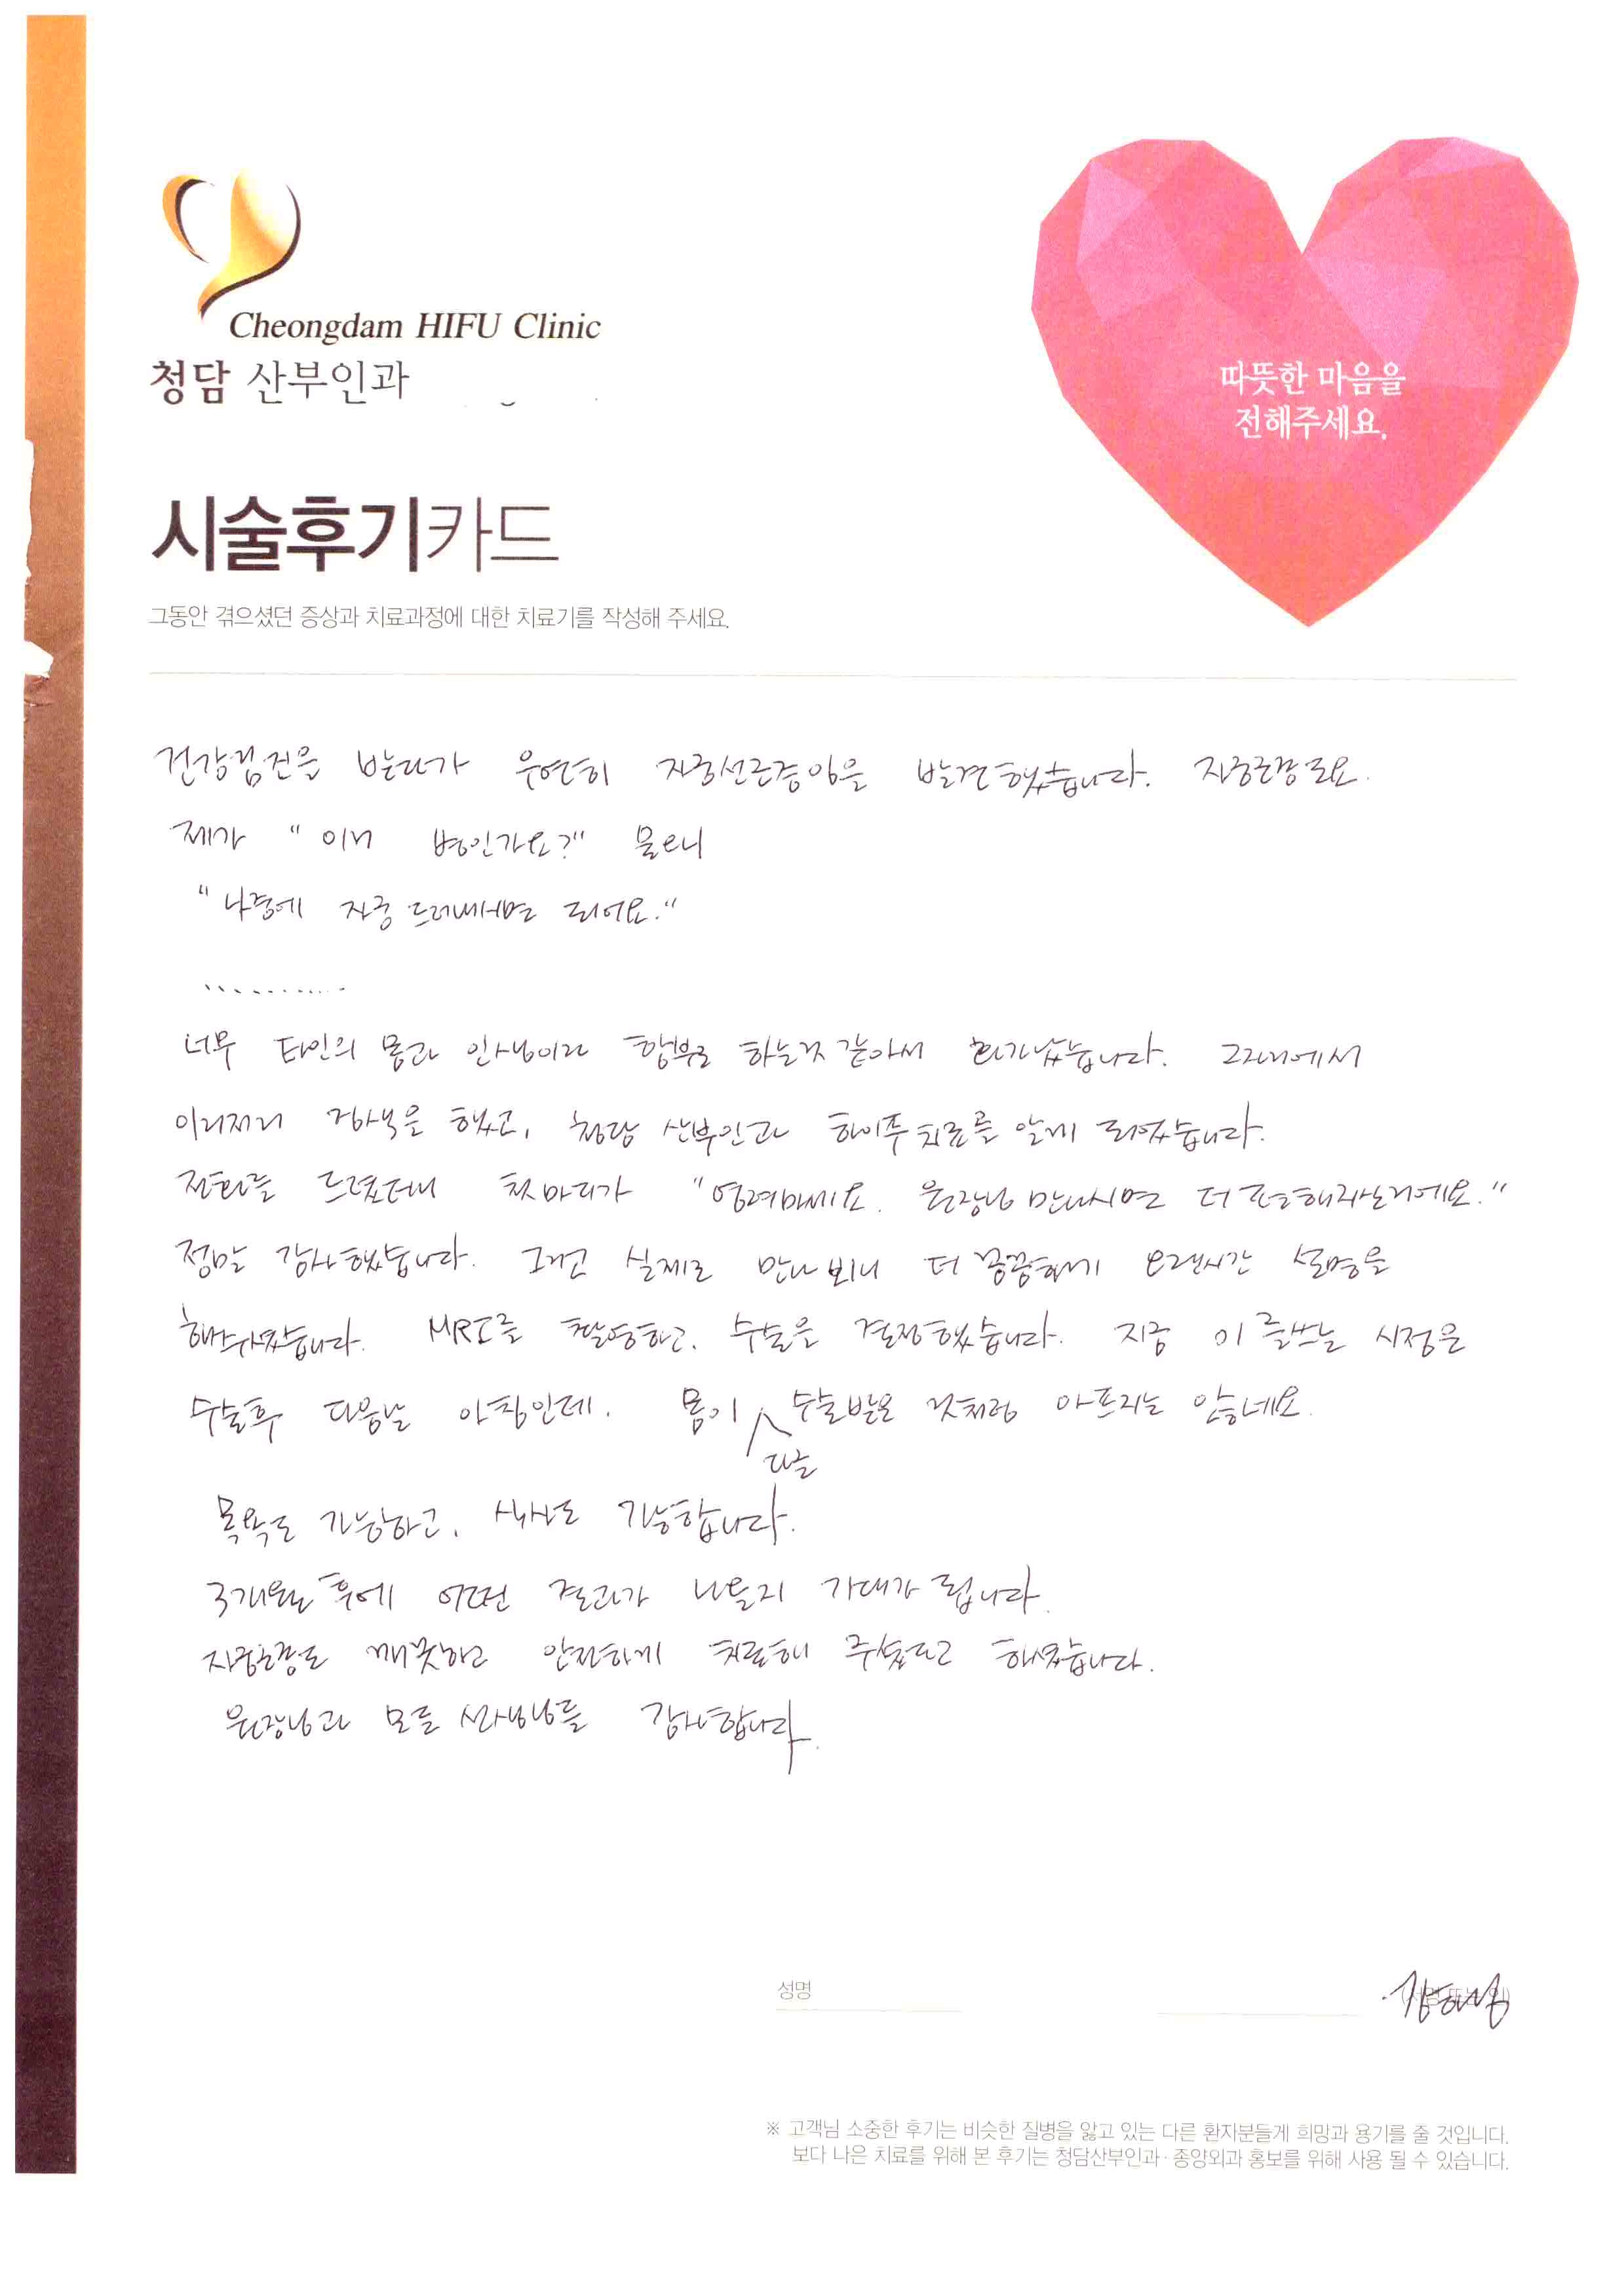 Cheongdam HIFU Clinic
청담 산부인과
따뜻한 마음을
전해주세요.
시술후기카드
그동안 겪으셨던 증상과 치료과정에 대한 치료기를 작성해 주세요.
건강검진을 받다가 우연히 자궁선근종양을 발견했습니다. 자궁근종도요.
제가 "이게 병인가요?" 물으니
"나중에 자궁 드러내시면 되어요."
...........
너무 타인의 몸과 인생이라 함부로 하는것 같아서 화가났습니다. 그자리에서
이리저리 검색을 했고, 청담 산부인과 하이푸 치료를 알게 되었습니다.
전화를 드렸더니 첫마디가 "염려마세요. 원장님 만나시면 더 편해지실거에요."
정말 감사했습니다. 그리고 실제로 만나 뵈니 더 꼼꼼하게 오랜시간 설명을
해주셨습니다. MRI를 촬영하고, 수술을 결정했습니다. 지금 이 글쓰는 시점은
수술후 다음날 아침인데, 몸이 수술받은 것처럼 아프지는 않네요.
다른
목욕도 가능하고, 식사도 가능합니다.
3개월 후에 어떤 결과가 나올지 기대가 됩니다.
자궁근종도 깨끗하고 안전하게 치료해 주셨다고 하셨습니다.
원장님과 모든 선생님들 감사합니다.
성명
※ 고객님 소중한 후기는 비슷한 질병을 앓고 있는 다른 환자분들게 희망과 용기를 줄 것입니다.
보다 나은 치료를 위해 본 후기는 청담산부인과·종양외과 홍보를 위해 사용 될 수 있습니다.